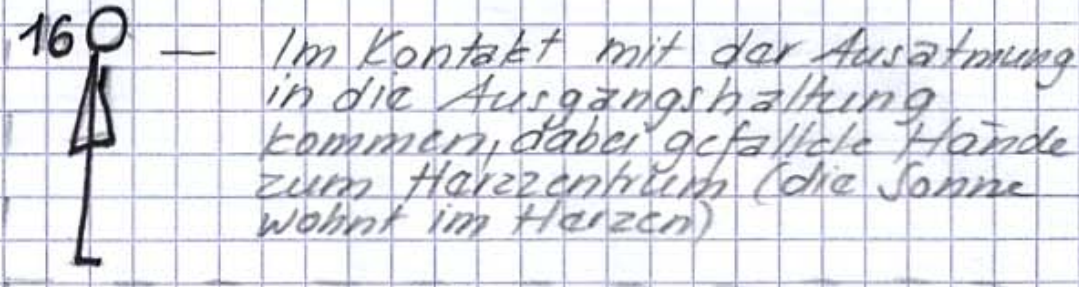 16 — Im Kontakt mit der Ausatmung
in die Ausgangshaltung
kommen, dabei gefaltete Hände
zum Herzzentrum (die Sonne
wohnt im Herzen)